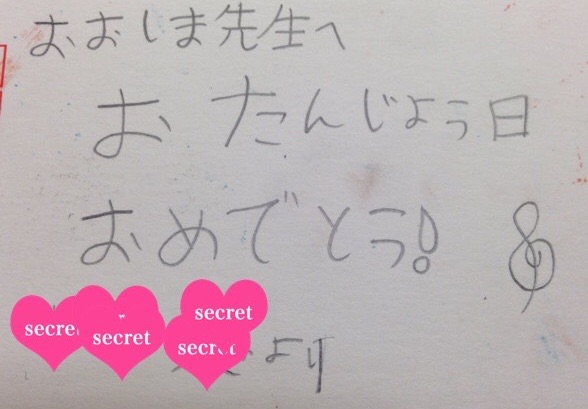 おおしま先生へ
おたんじょう日
おめでとう!
secret secret secret secret
より